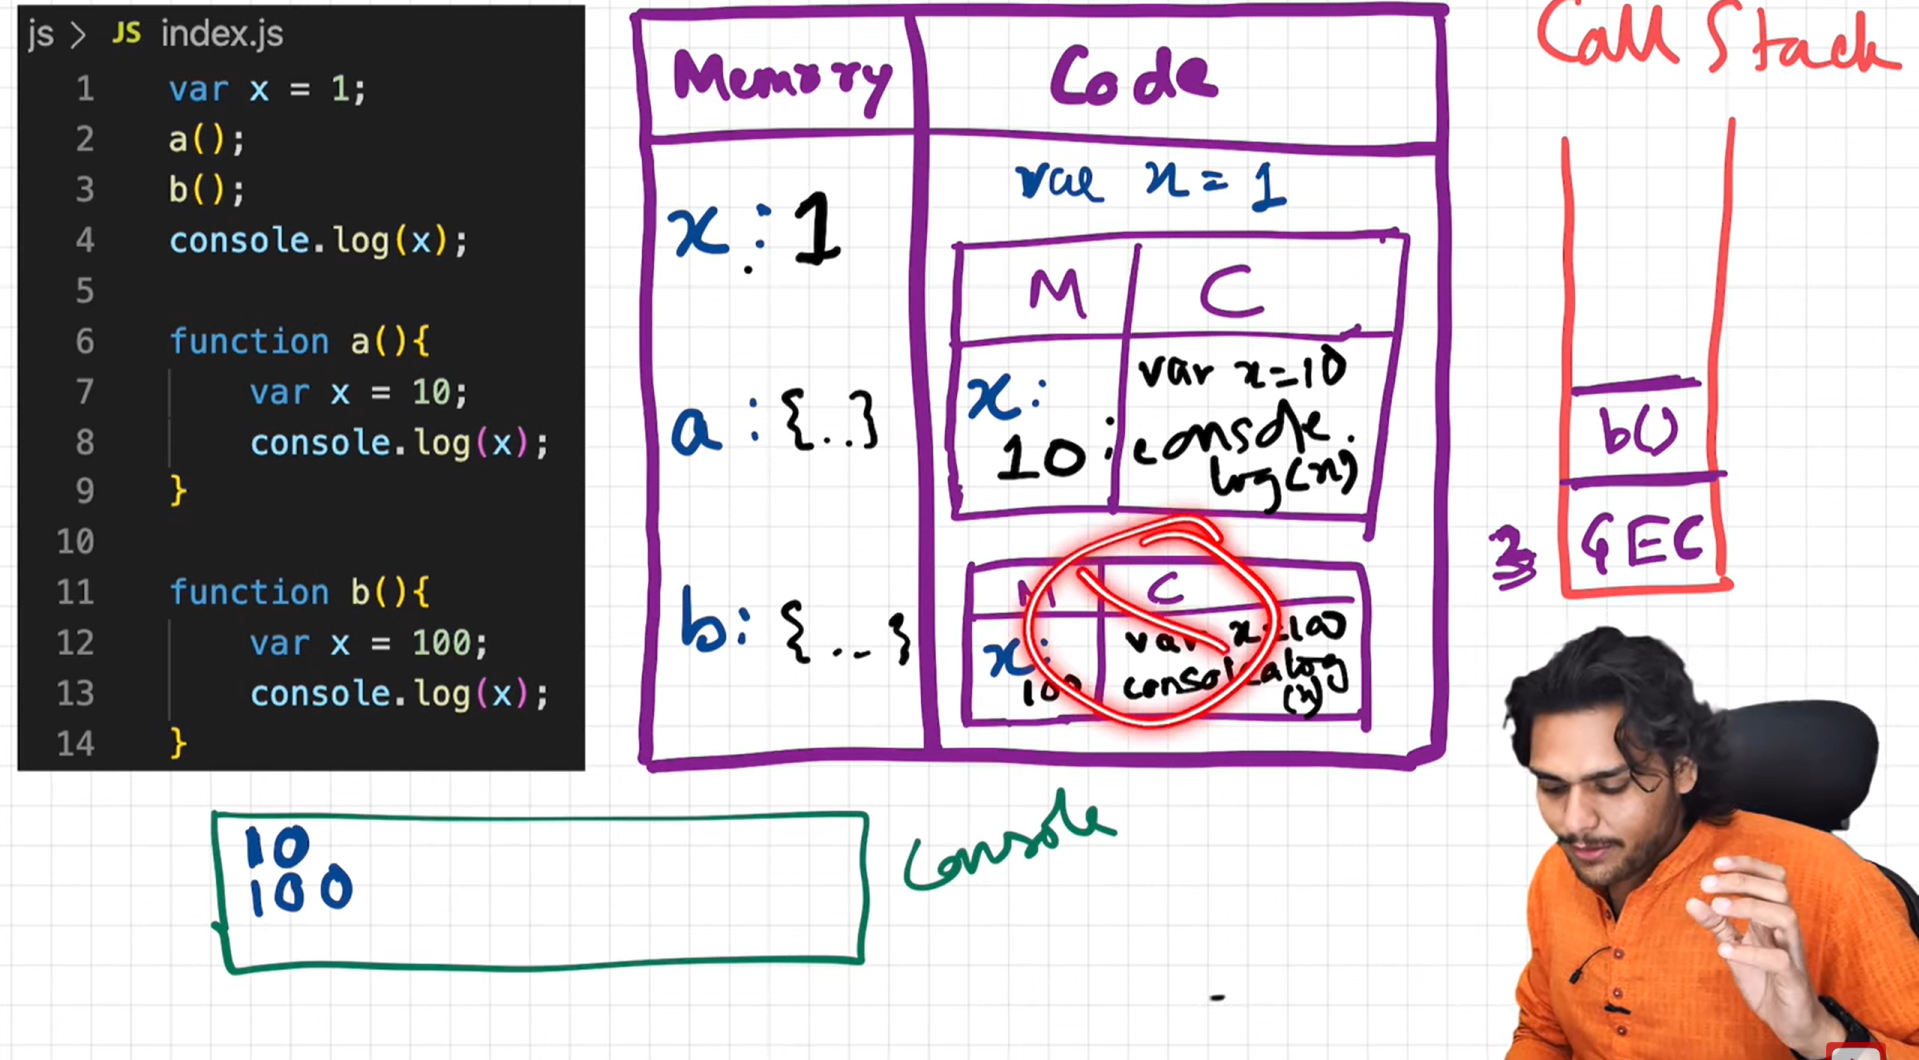 js > JS index.js
1 var x = 1;
2 a();
3 b();
4 console.log(x);
5
6 function a(){
7 var x = 10;
8 console.log(x);
9 }
10
11 function b(){
12 var x = 100;
13 console.log(x);
14 }
Memory Code
x : 1
var x = 1
M C
x: 10
var x=10
console.
log(x);
a : {..}
b: {...}
M C
x: 100
var x=100
console.log
(x)
Call Stack
b()
GEC
10
100
Console